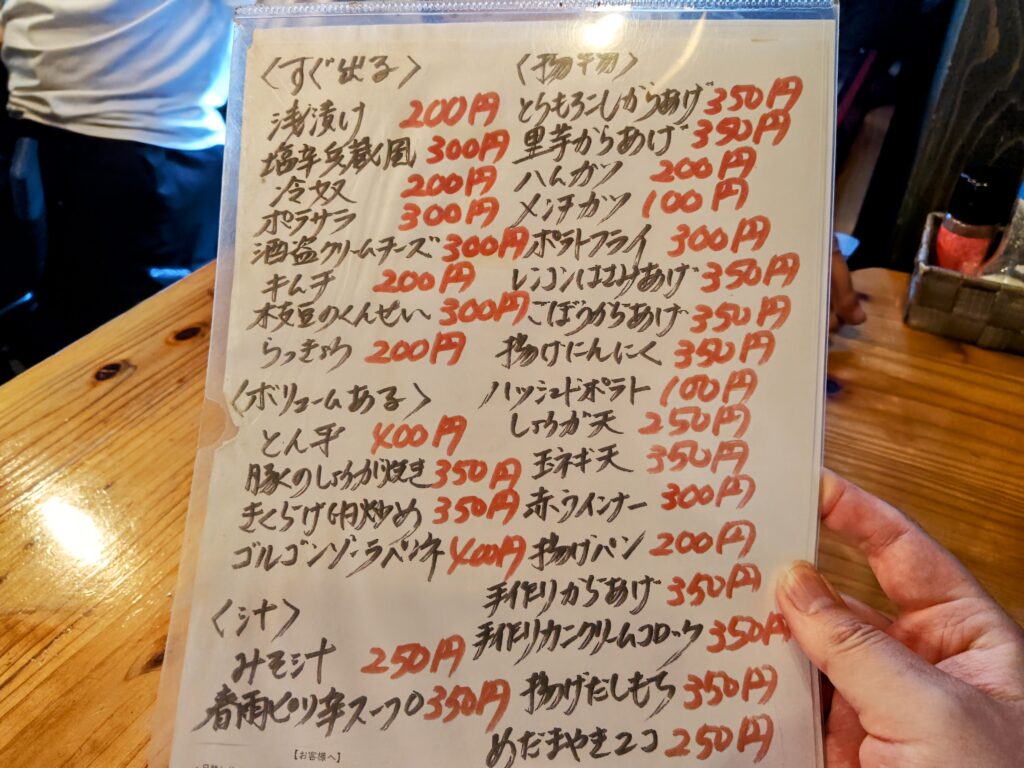 〈すぐ出る〉
浅漬け 200円
塩辛兵蔵風 300円
冷奴 200円
ポテサラ 300円
酒盗クリームチーズ 300円
キムチ 200円
枝豆のくんせい 300円
らっきょう 200円
〈ボリュームある〉
とん平 400円
豚のしょうが焼き 350円
きくらげ肉炒め 350円
ゴルゴンゾーラペンネ 400円
〈汁〉
みそ汁 250円
春雨ピリ辛スープ 350円
【お客様へ】
〈揚物〉
とうもろこしからあげ 350円
里芋からあげ 350円
ハムカツ 200円
メンチカツ 100円
ポテトフライ 300円
レンコンはさみあげ 350円
ごぼうからあげ 350円
揚げにんにく 350円
ハッシュドポテト 100円
しょうが天 250円
玉ネギ天 350円
赤ウインナー 300円
揚げパン 200円
手作りからあげ 350円
手作りカニクリームコロッケ 350円
揚げだしもち 350円
めだまやき2コ 250円